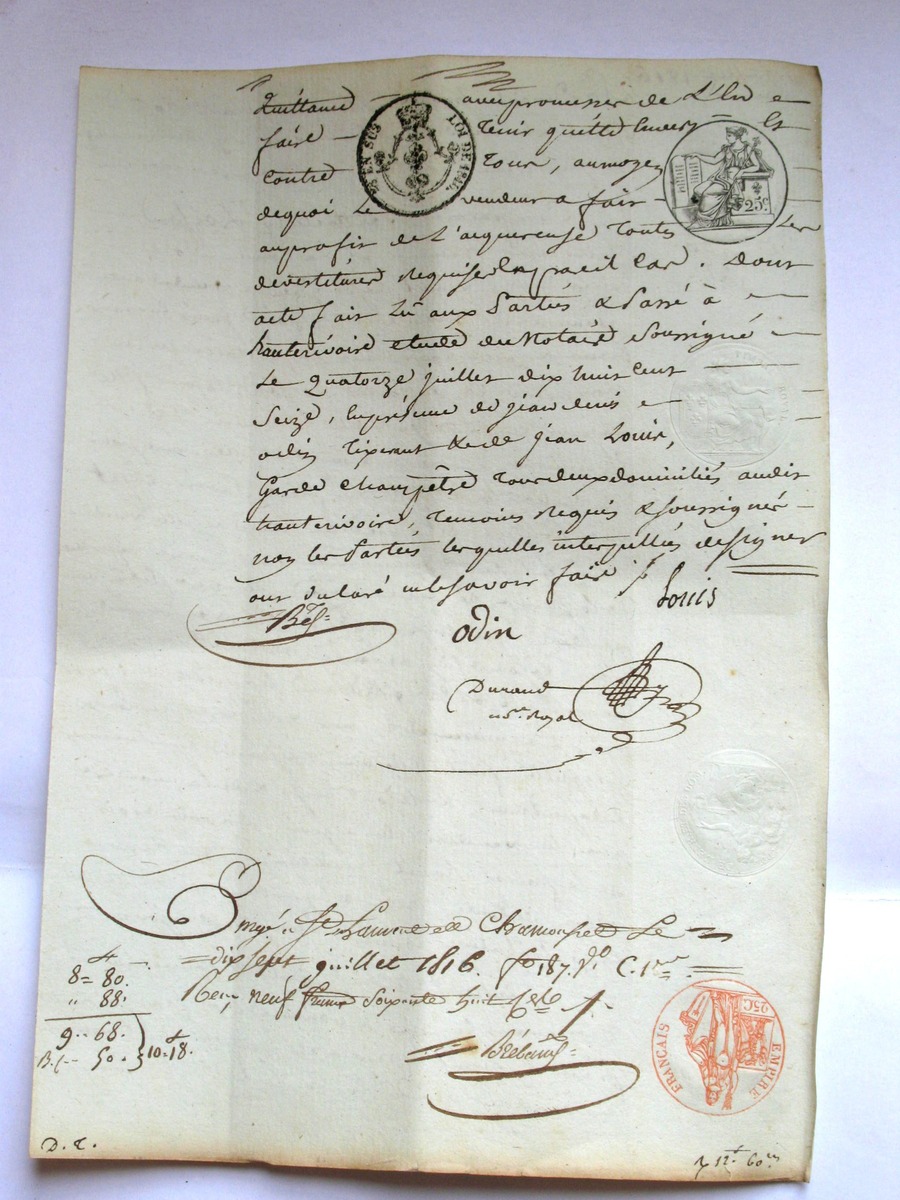 quittance avec promesse de L'en
faire tenir quitte envers et
contre tous, au moyen
dequoi Le vendeur a fait
au profit de L'acquereuse toutes Les
devestitures requises En pareil Cas. Dont
acte fait Lu aux Parties & Passé à
hauterivoire etude du Notaire soussigné
Le quatorze juillet dix huit cent
seize, En présence de jean denis
odin tixerant & de jean Louis,
Garde Champêtre tous deux domiciliés audit
hauterivoire, temoins requis & soussignés
non les Parties lesquelles interpellées de signer
ont declaré ne le savoir faire
Louis
odin
Durand
not.re Royal
EN SUS LOI DE 1816.
25c
Enregé à St Laurent de Chamousset Le
dix sept juillet 1816. fo 187. Vo C. 1ere
Reçu neuf francs soixante huit
8= 80.
" 88.
9-- 68.
50. 10= 18.
EMPIRE FRANCAIS
25C
D. C.
12f 60